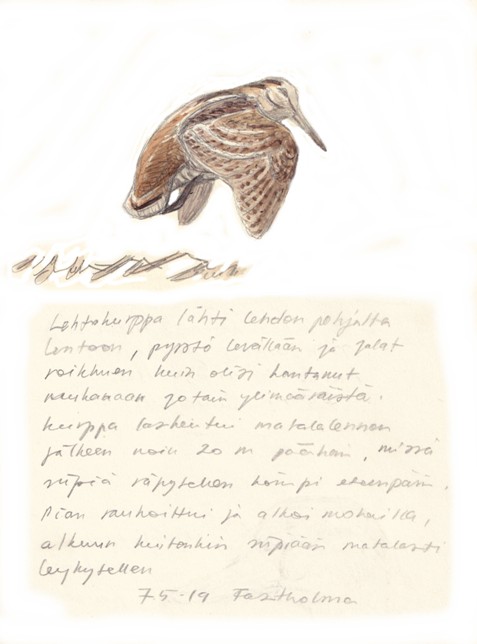 Lehtokurppa lähti lehdon pohjalta
lentoon, pyrstö levällään ja jalat
roikkuen kuin olisi kantanut
mukanaan jotain ylimääräistä.
kurppa laskeutui matalalennon
jälkeen noin 20 m päähän, missä
siipiä räpytellen kömpi eteenpäin.
Pian rauhoittui ja alkoi
alkuun kuitenkin siipiään matalasti
leykytellen
7.5-19 Fastholma